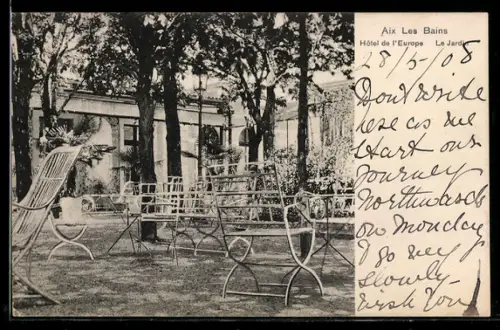 Aix Les Bains
Hôtel de l'Europe Le Jardin
28/5-08
Don't write
here as we
start our
journey
Northwards
on Monday
I go very
slowly -
wish you